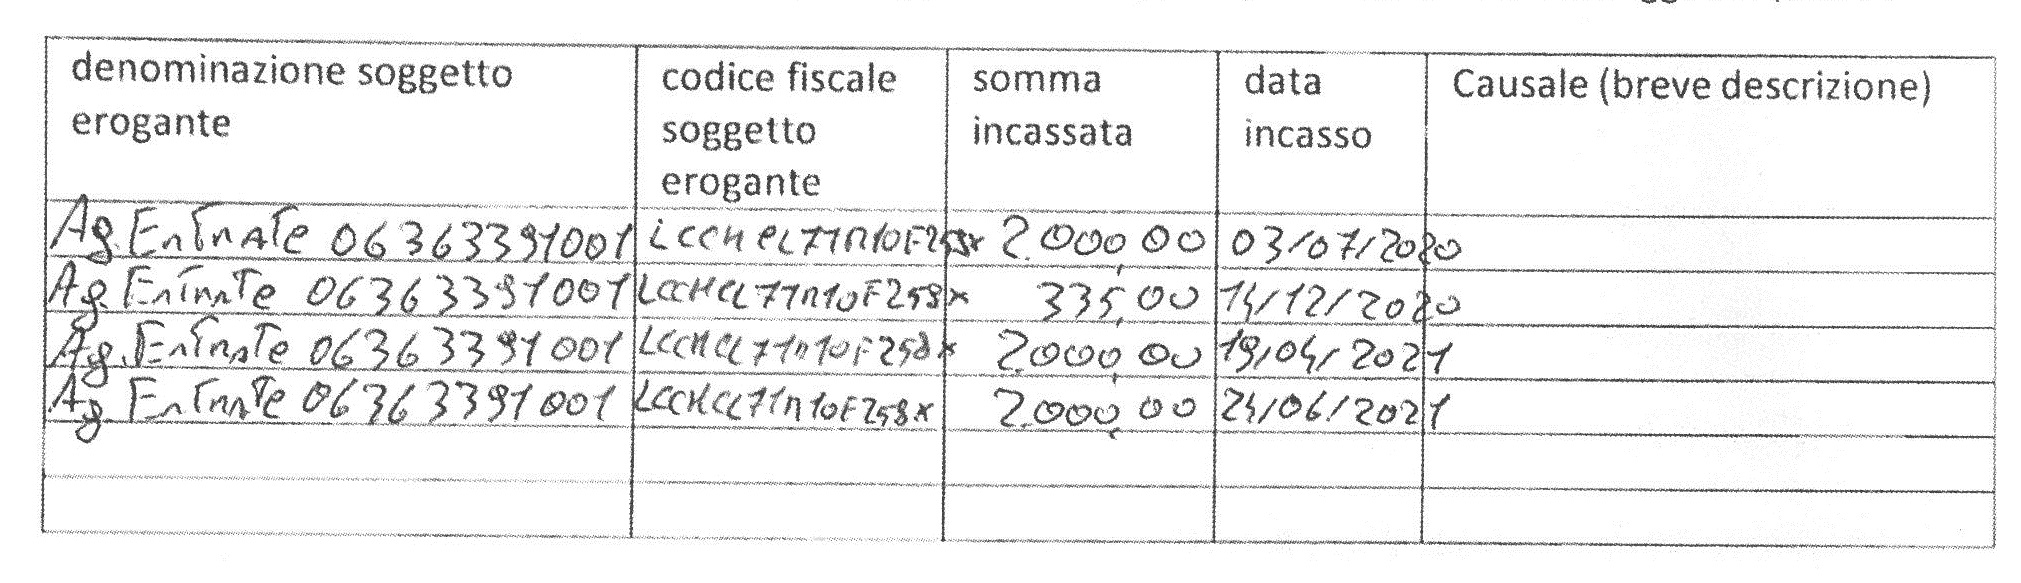 denominazione soggetto erogante codice fiscale soggetto erogante somma incassata data incasso Causale (breve descrizione)
Ag. Entrate 06363391001 LCCMCL77R10F258X 2.000,00 03/07/2020
Ag. Entrate 06363391001 LCCMCL77R10F258X 335,00 14/12/2020
Ag. Entrate 06363391001 LCCMCL77R10F258X 2.000,00 19/04/2021
Ag. Entrate 06363391001 LCCMCL77R10F258X 2.000,00 24/06/2021